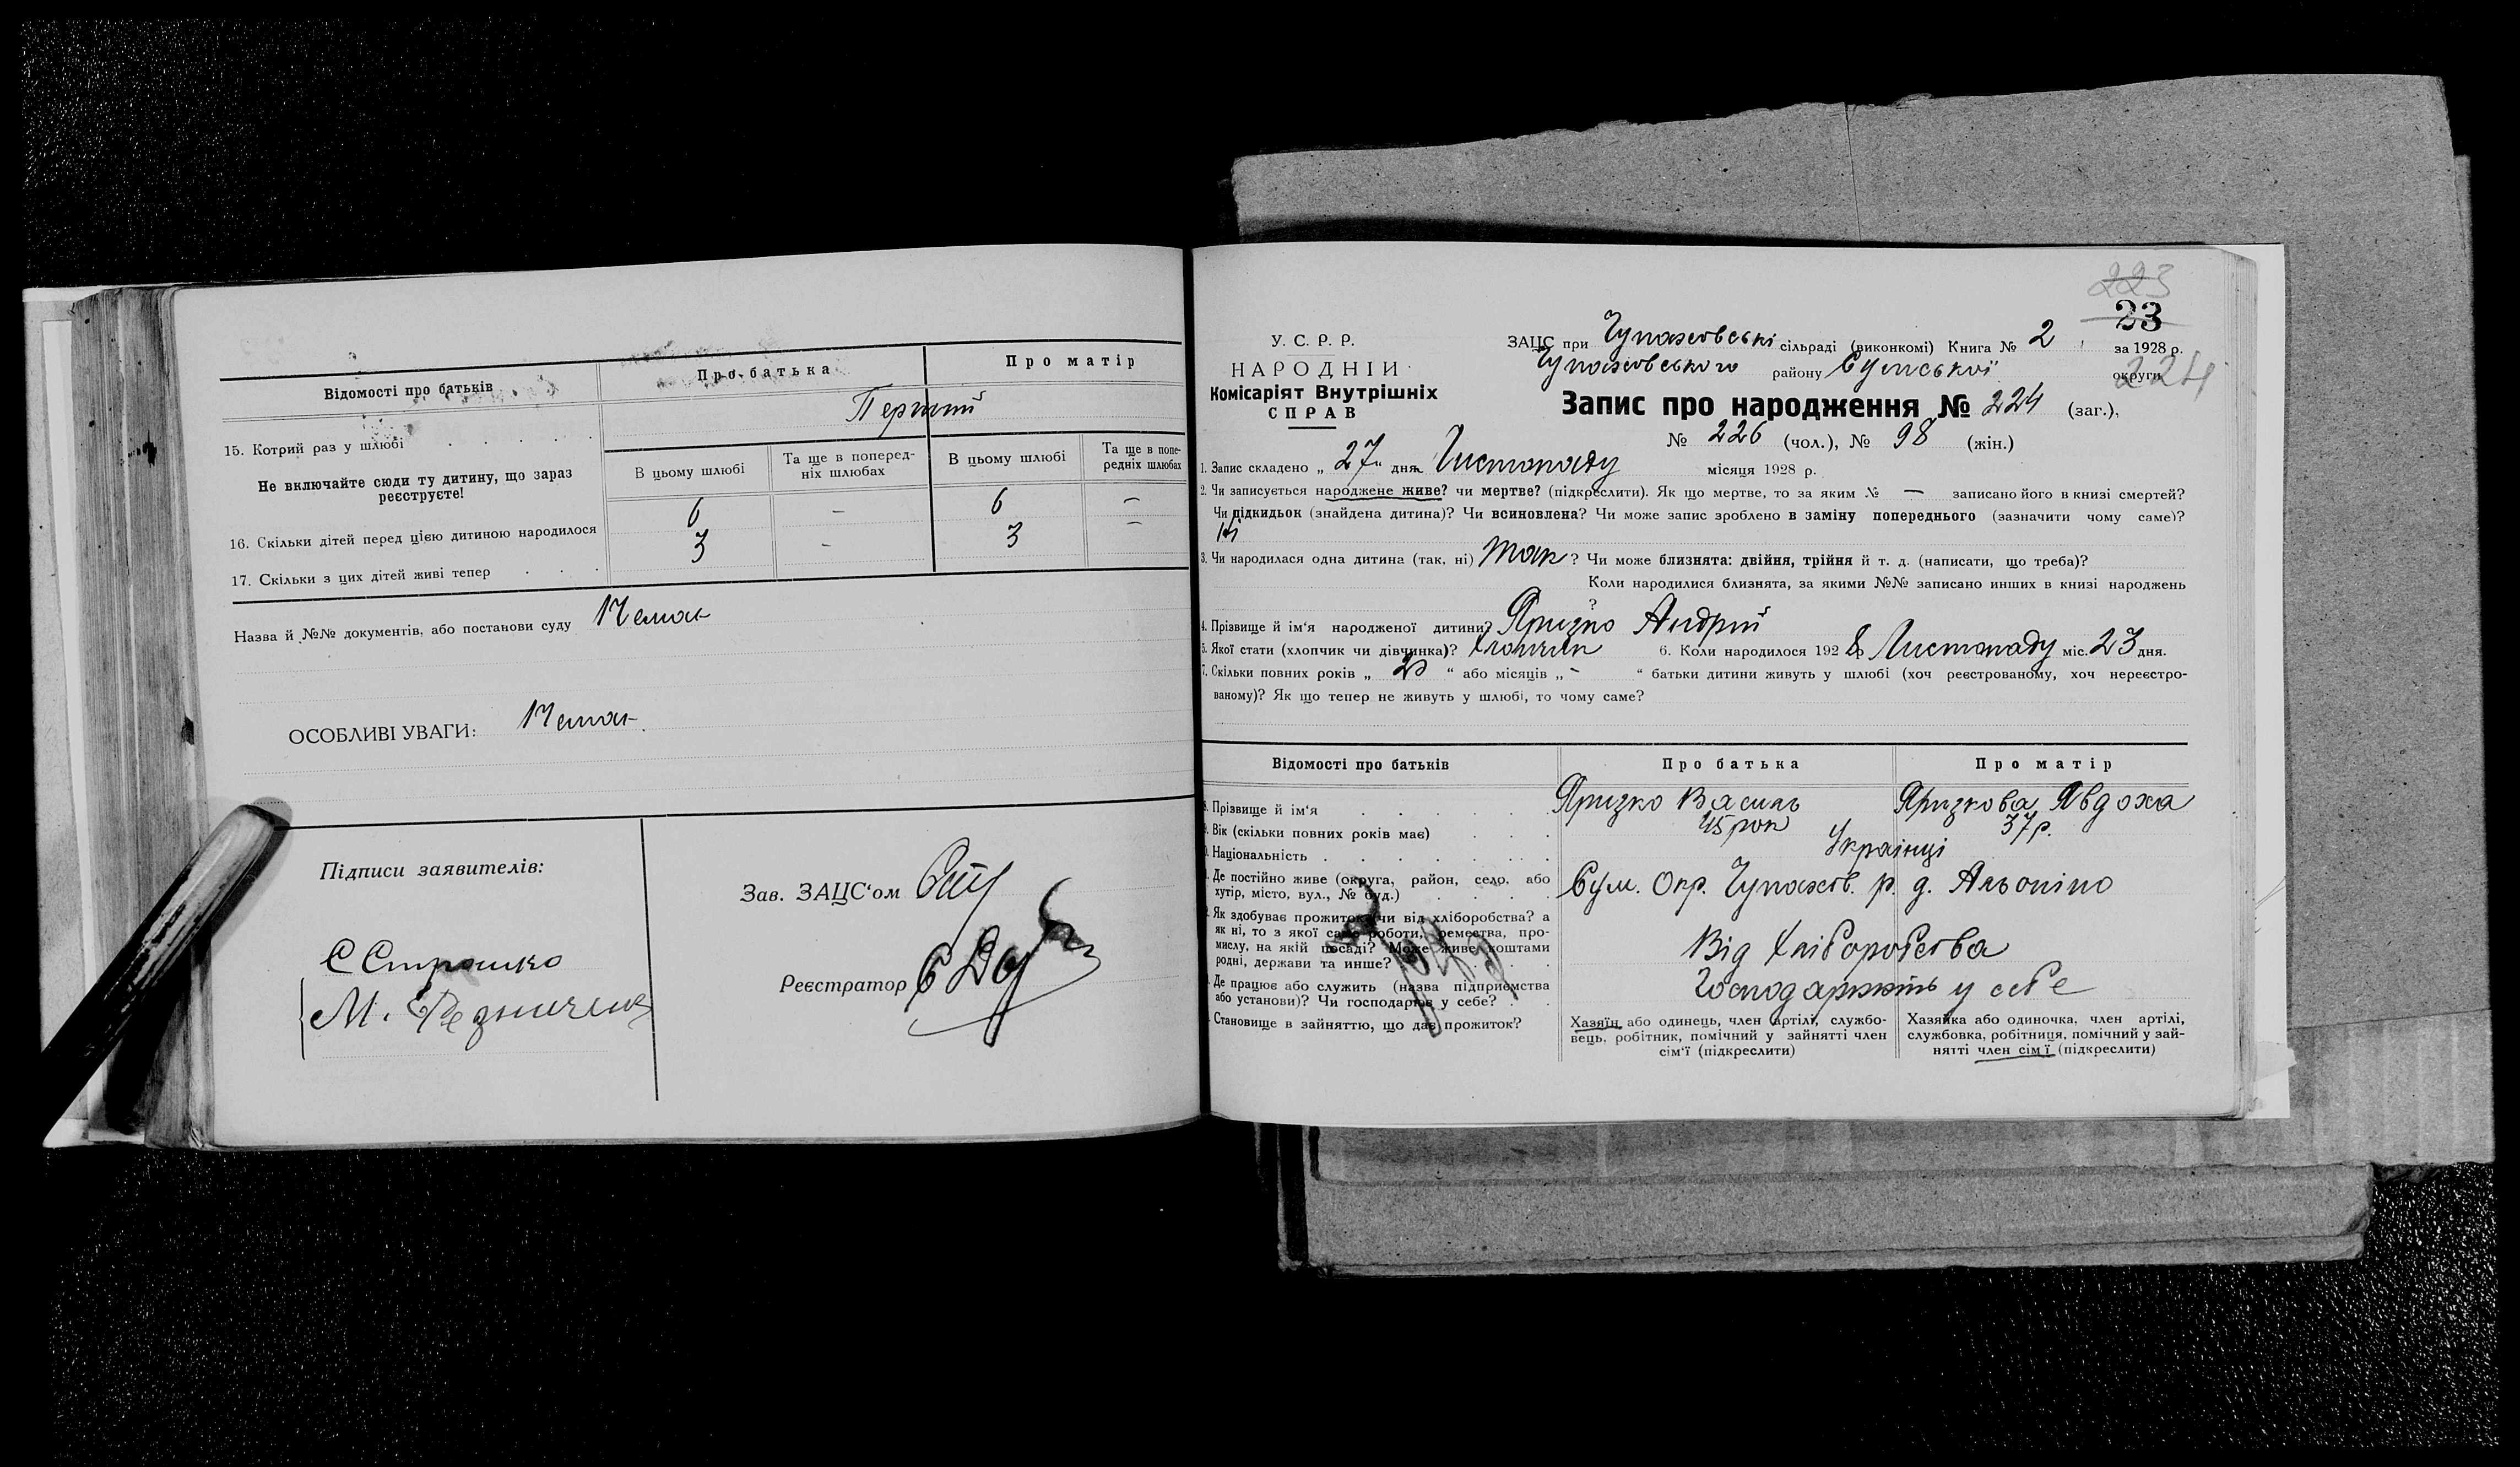 Відомості про батьків
Про батька
Про матір
15. Котрий раз у шлюбі
Перший
Не включайте сюди ту дитину, що зараз реєструєте!
В цьому шлюбі
Та ще в поперед-
ніх шлюбах
В цьому шлюбі
Та ще в попе-
редніх шлюбах
16. Скільки дітей перед цією дитиною народилося 6 — 6 —
17. Скільки з цих дітей живі тепер 3 — 3 —
Назва й №№ документів, або постанови суду Немає
ОСОБЛИВІ УВАГИ: Немає.
Підписи заявителів:
С Страшко
М. Резниченко
Зав. ЗАЦС'ом
Реєстратор
223
23
224
У. С. Р. Р.
НАРОДНІЙ
Комісаріят Внутрішніх
СПРАВ
ЗАЦС при Чупахівські сільраді (виконкомі) Книга № 2 за 1928 р.
Чупахівського району Сумської округи
Запис про народження № 224 (заг.),
№ 226 (чол.), № 98 (жін.)
1. Запис складено „ 27 " дня Листопаду місяця 1928 р.
2. Чи записується народжене живе? чи мертве? (підкреслити). Як що мертве, то за яким № — записано його в книзі смертей?
Чи підкидьок (знайдена дитина)? Чи всиновлена? Чи може запис зроблено в заміну попереднього (зазначити чому саме)?
Ні
3. Чи народилася одна дитина (так, ні) Так ? Чи може близнята: двійня, трійня й т. д. (написати, що треба)?
Коли народилися близнята, за якими №№ записано инших в книзі народжень
?
4. Прізвище й ім'я народженої дитини? Яризко Андрій
5. Якої стати (хлопчик чи дівчинка)? Хлопчик 6. Коли народилося 1928 р Листопаду міс. 23 дня.
7. Скільки повних років „ 20 " або місяців „ – " батьки дитини живуть у шлюбі (хоч реєстрованому, хоч нереєстро-
ваному)? Як що тепер не живуть у шлюбі, то чому саме?
Відомості про батьків
Про батька
Про матір
Прізвище й ім'я Яризко Василь Яризкова Явдоха
Вік (скільки повних років має) 45 рок 37 р.
Національність Українці
Де постійно живе (округа, район, село, або
хутір, місто, вул., № буд.)
Сум. Окр. Чупахів. р. д. Альопіно
Як здобуває прожиток: чи від хліборобства? а
як ні, то з якої саме роботи, ремества, про-
мислу, на якій посаді? Може живе коштами
родні, держави та инше?
Від Хліборобства
Де працює або служить (назва підприємства
або установи)? Чи господарює у себе?
Господарюють у себе
Становище в зайняттю, що дає прожиток?
Хазяїн або одинець, член артілі, службо-
вець, робітник, помічний у зайнятті член
сім'ї (підкреслити)
Хазяйка або одиночка, член артілі,
службовка, робітниця, помічний у зай-
нятті член сім'ї (підкреслити)